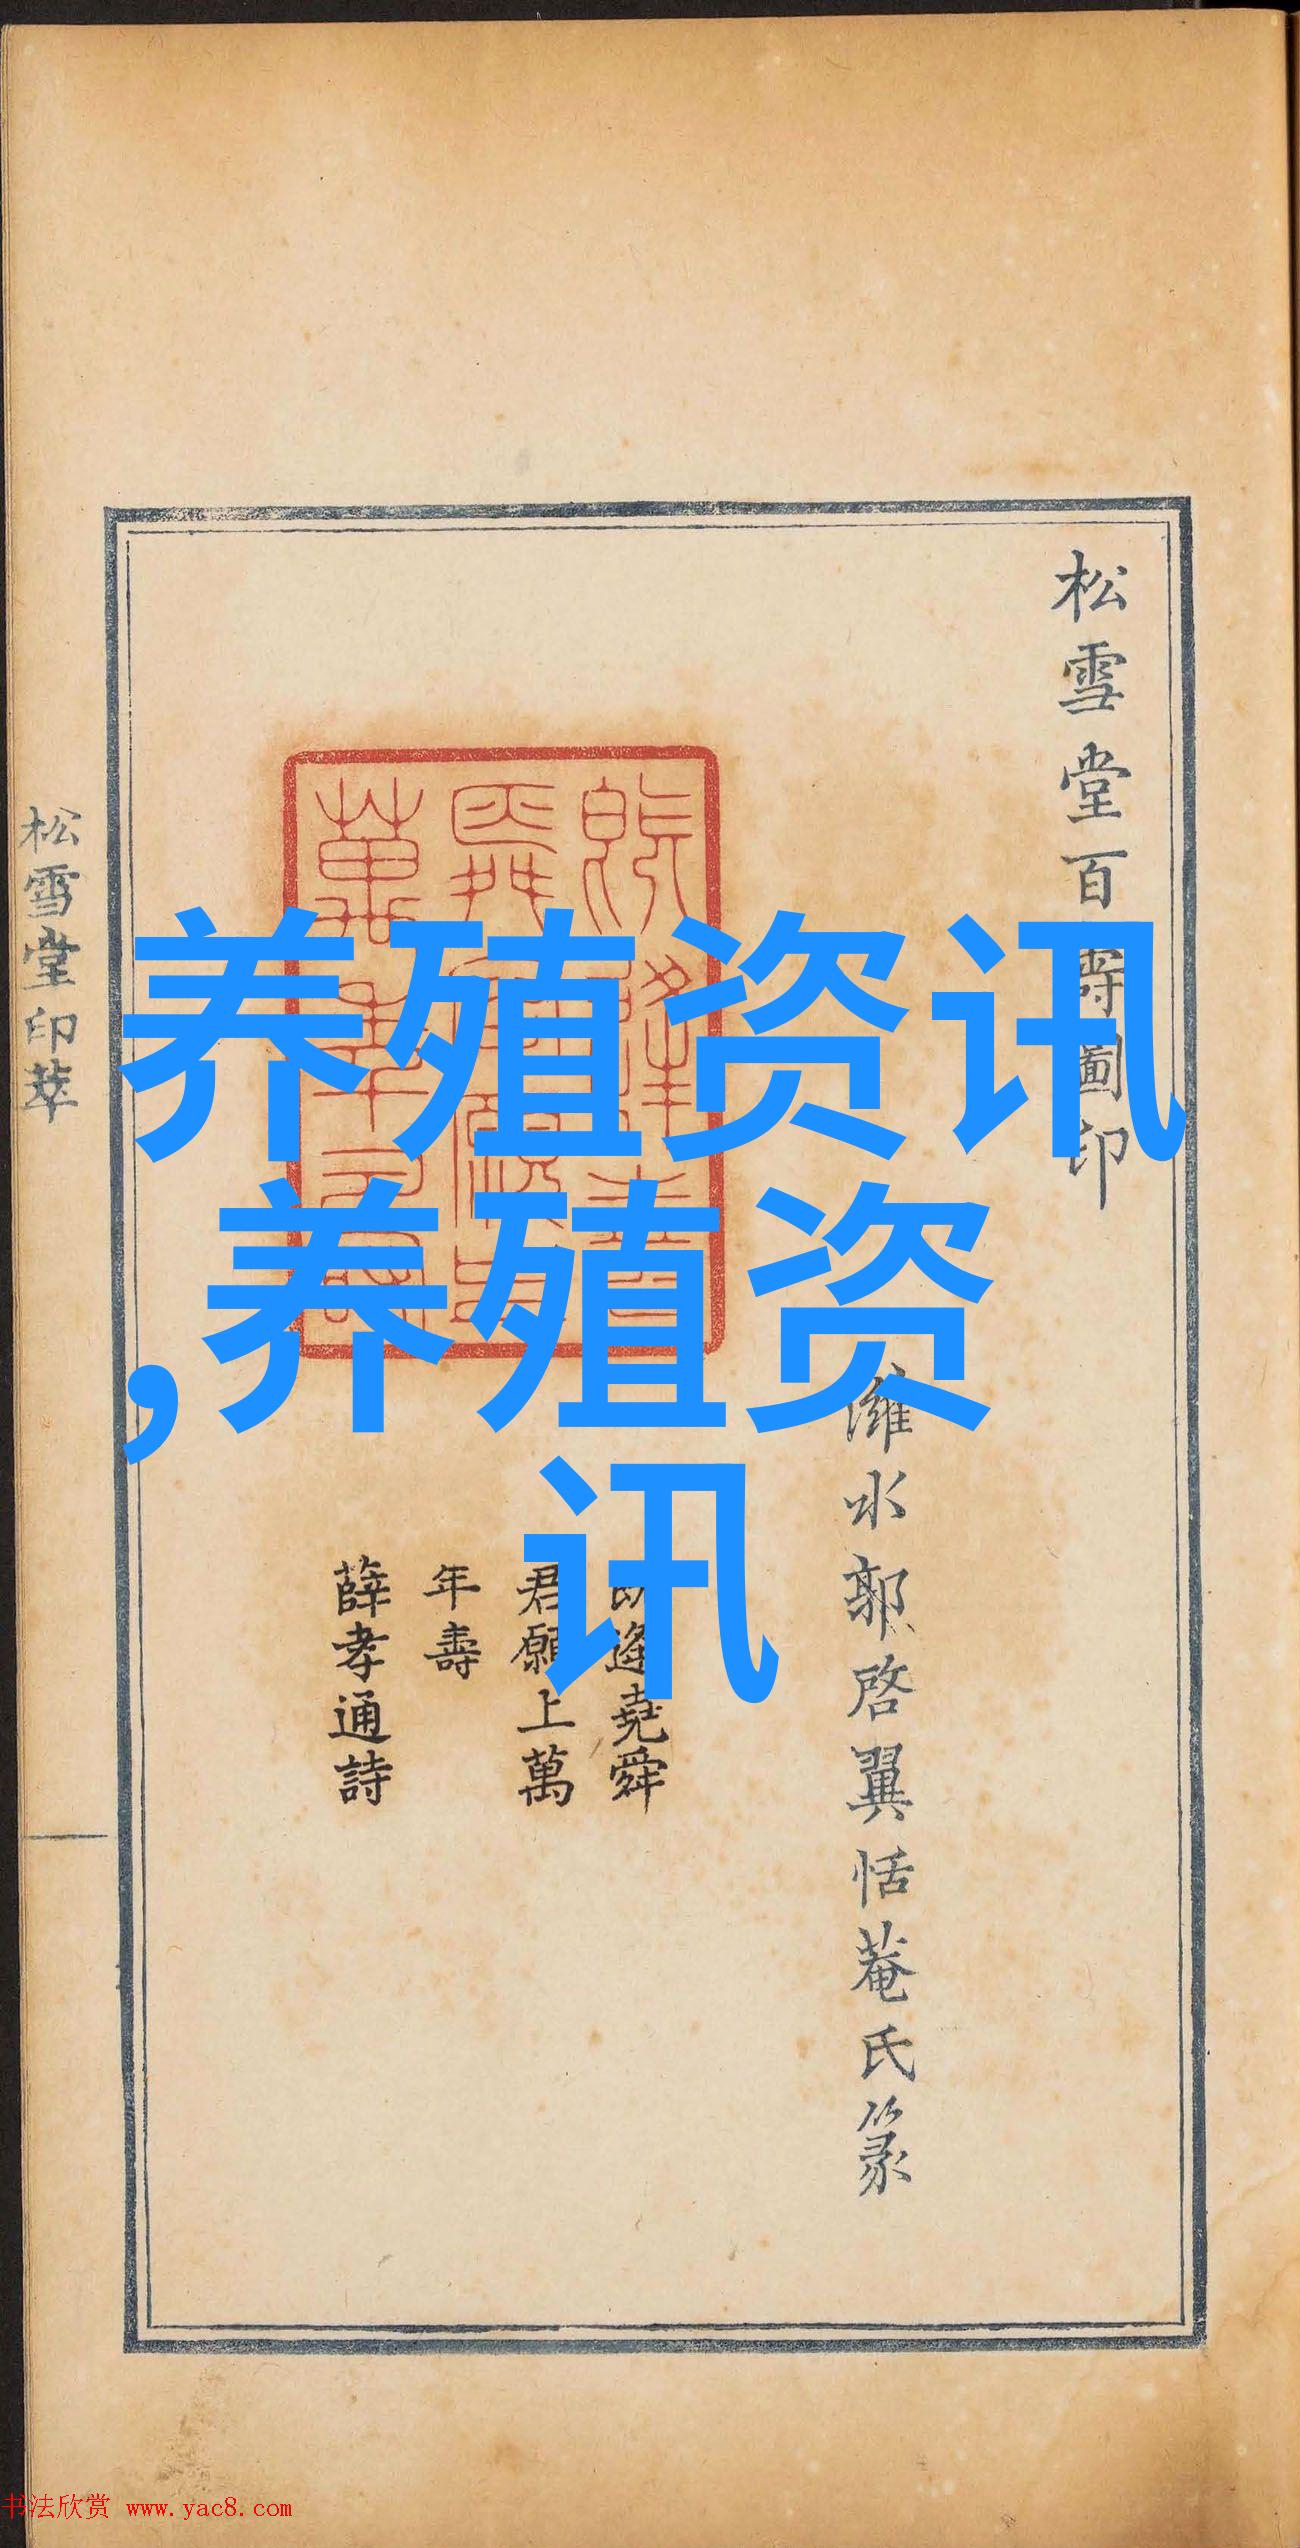 松雪堂百壽圖印
濰水郭啓翼恬菴氏篆
既逢堯舜
君願上萬
年壽
薛孝通詩
松雪堂印萃
养殖资讯
,养殖资
讯
书法欣赏 www.yac8.com